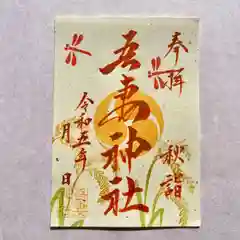 奉拝
秋詣
吾妻神社
令和五年
月 日